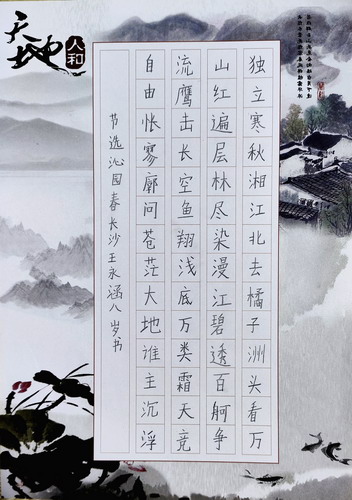 天地人和
独立寒秋湘江北去橘子洲头看万
山红遍层林尽染漫江碧透百舸争
流鹰击长空鱼翔浅底万类霜天竞
自由怅寥廓问苍茫大地谁主沉浮
节选沁园春长沙王永涵八岁书